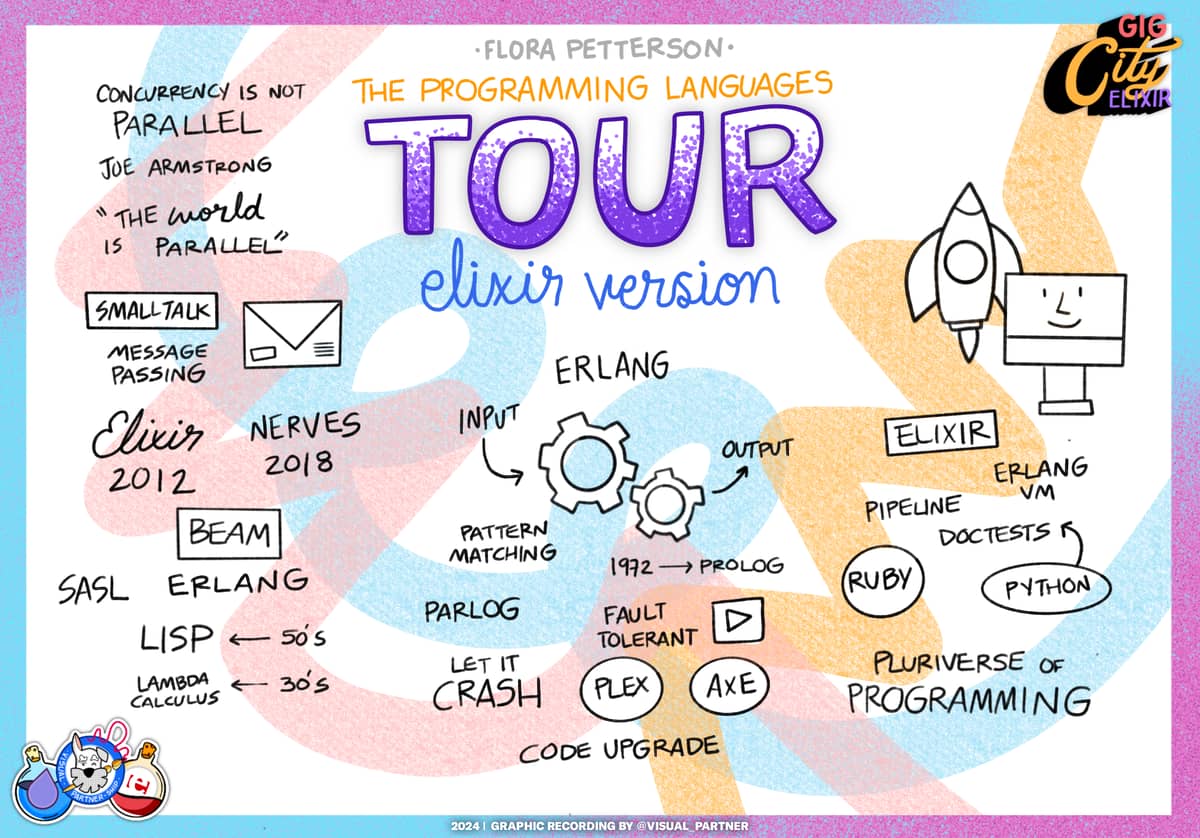 ·FLORA PETTERSON·
THE PROGRAMMING LANGUAGES
TOUR
elixir version
GIG
City
ELIXIR
CONCURRENCY IS NOT
PARALLEL
JOE ARMSTRONG
"THE world
IS PARALLEL"
SMALLTALK
MESSAGE
PASSING
Elixir
2012
NERVES
2018
BEAM
SASL ERLANG
LISP ← 50'S
LAMBDA
CALCULUS ← 30'S
ERLANG
INPUT
OUTPUT
PATTERN
MATCHING
1972 → PROLOG
PARLOG
FAULT
TOLERANT
LET IT
CRASH
PLEX
AXE
CODE UPGRADE
ELIXIR
ERLANG
VM
PIPELINE
DOCTESTS
RUBY
PYTHON
PLURIVERSE OF
PROGRAMMING
2024 | GRAPHIC RECORDING BY @VISUAL_PARTNER